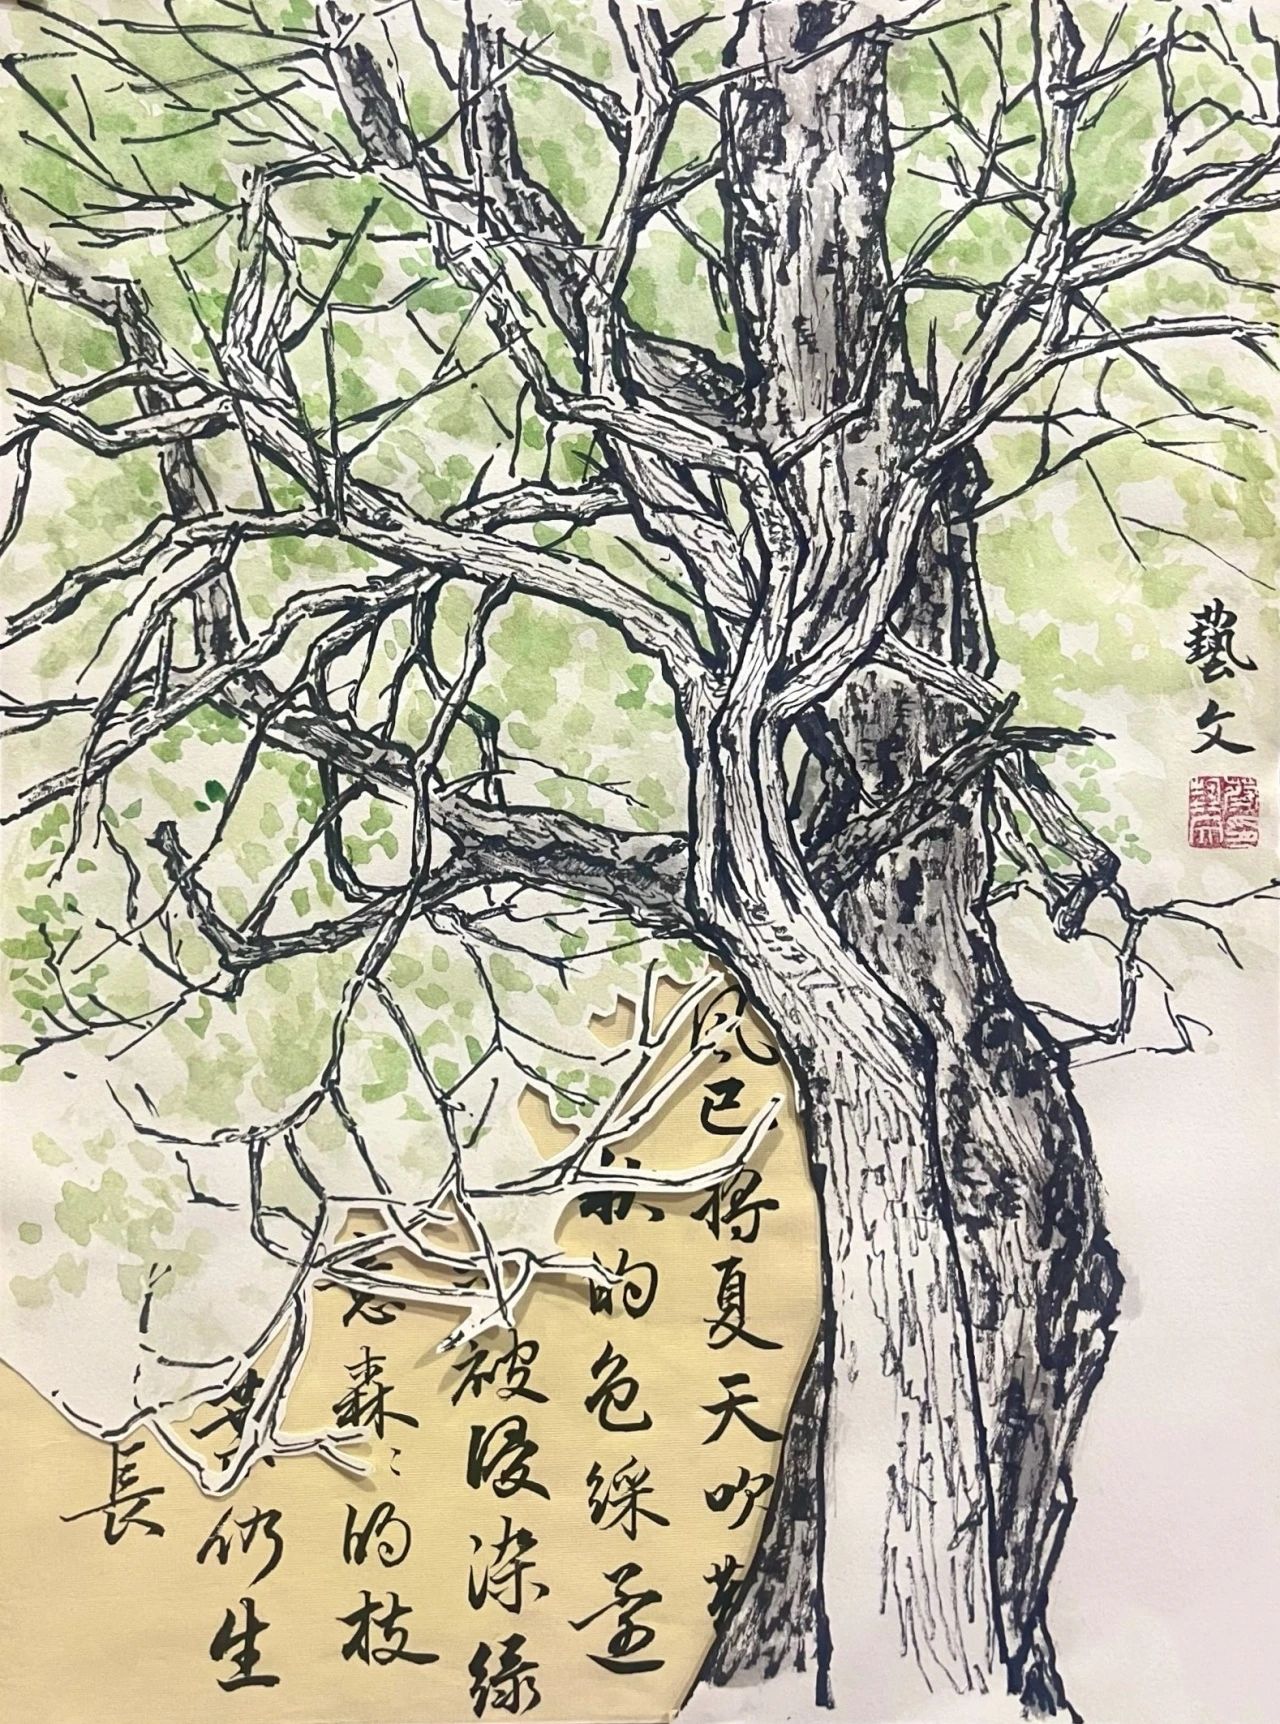 藝文
風已將夏天吹黃
秋的色綵還
被浸染綠
意森森的枝
葉仍生
長